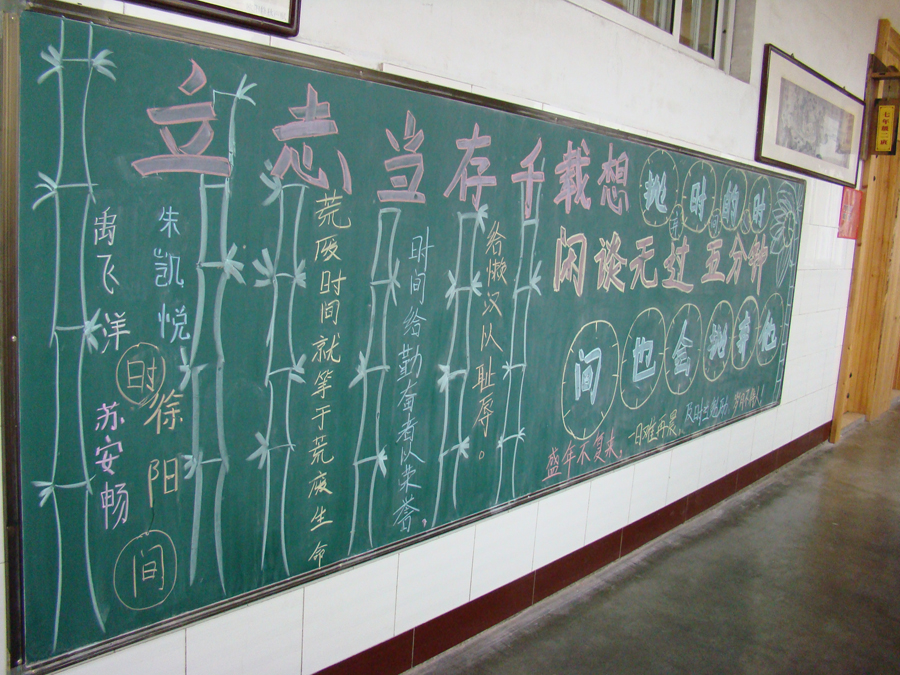 立志当存千载想
抛时的时
闲谈无过五分钟
间也会抛弃他
盛年不复来,
一日难再晨,
及时当勉励
岁月不待人
给懒汉以耻辱。
时间给勤奋者以荣誉,
荒废时间就等于荒废生命
朱凯悦
徐阳
禹飞洋
苏安畅
时
间
七年级二班